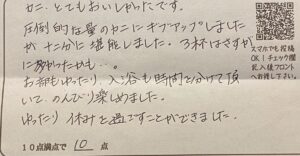 カニ、とてもおいしかったです。
圧倒的な量のカニにギブアップしました
が十二分に堪能しました。3杯はさすが
に多かったかも…。
お部屋もゆったり、入浴も時間を分けて頂
いて、のんびり楽しめました。
ゆったり休みを過ごすことができました。
スマホでも投稿
OK！チェック欄
記入後フロント
へお渡し下さい。
10点満点で 10 点